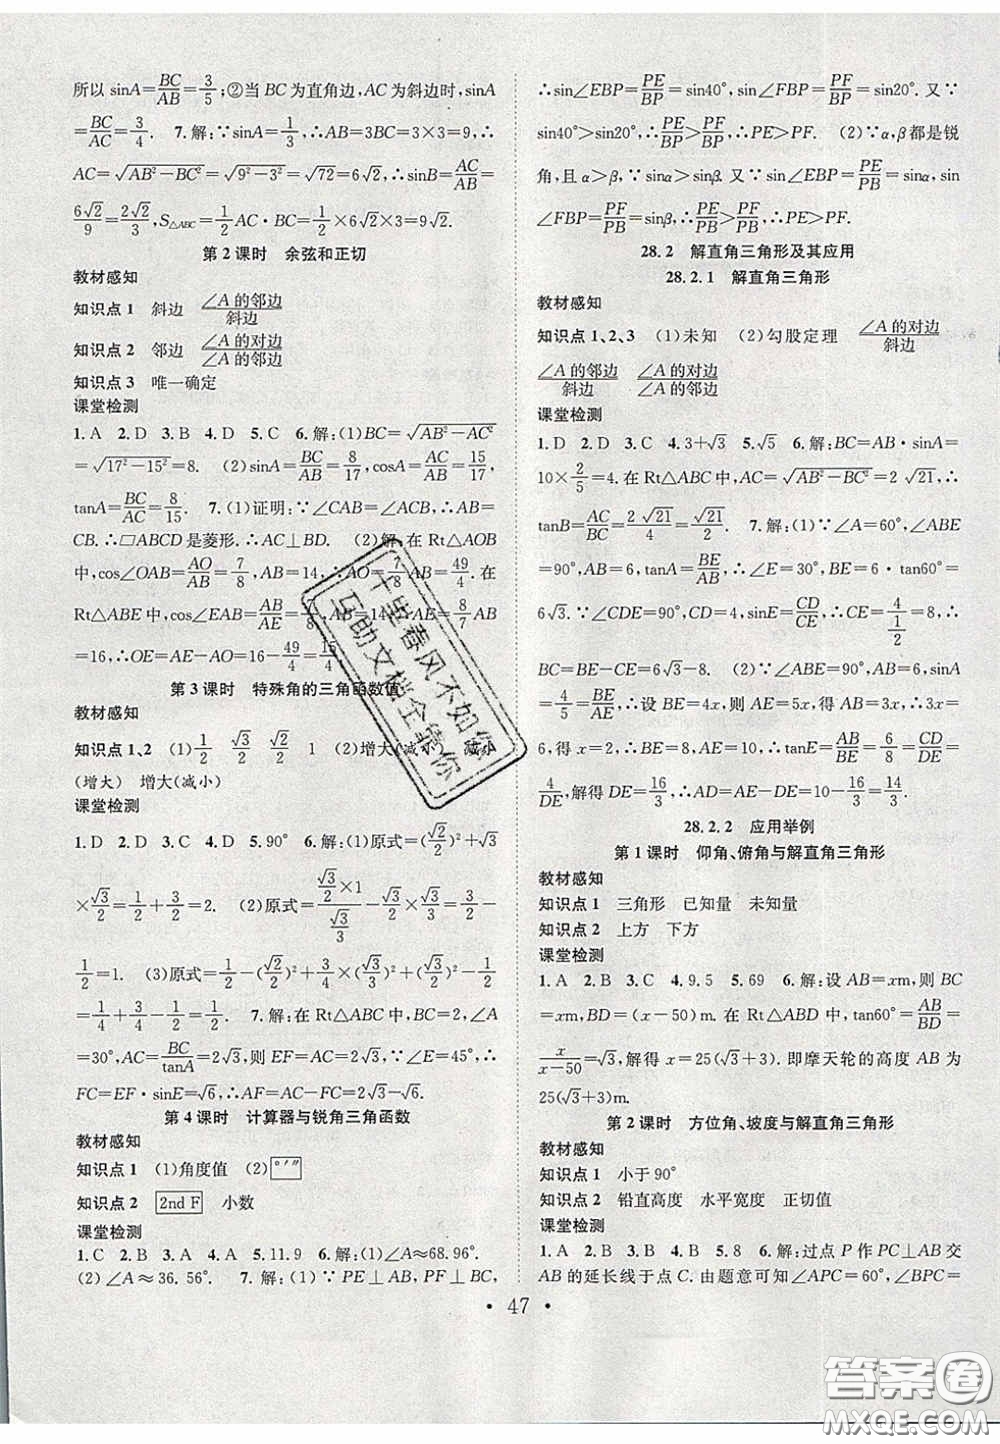 所以 sinA=BC/AB=3/5;②当 BC为直角边,AC为斜边时,sinA
=BC/AC=3/4. 7.解:∵sinA=1/3,∴AB=3BC=3×3=9,∴
AC=√(AB²-BC²)=√(9²-3²)=√72=6√2,∴sinB=AC/AB=
6√2/9=2√2/3,S△ABC=1/2AC·BC=1/2×6√2×3=9√2.
第2课时 余弦和正切
教材感知
知识点1 斜边 ∠A的邻边/斜边
知识点2 邻边 ∠A的对边/∠A的邻边
知识点3 唯一确定
课堂检测
1.A 2.D 3.B 4.D 5.C 6.解:(1)BC=√(AB²-AC²)
=√(17²-15²)=8. (2)sinA=BC/AB=8/17,cosA=AC/AB=15/17,
tanA=BC/AC=8/15. 7.(1)证明:∵∠CAB=∠ACB,∴AB=
CB.∴□ABCD是菱形.∴AC⊥BD. (2)解:在Rt△AOB
中,cos∠OAB=AO/AB=7/8,AB=14,∴AO=14×7/8=49/4.在
Rt△ABE中,cos∠EAB=AB/AE=7/8,AB=14,∴AE=8/7AB
=16,∴OE=AE-AO=16-49/4=15/4.
第3课时 特殊角的三角函数值
教材感知
知识点1,2 (1)1/2 √3/2 √2/2 1 (2)增大(减小) 减小
(增大) 增大(减小)
课堂检测
1.D 2.D 3.A 4.D 5.90° 6.解:(1)原式=(√2/2)²+√3
×√3/2=1/2+3/2=2. (2)原式=(√3/2×1)/(√3/3)-1/2=3/2-
1/2=1. (3)原式=1/2-(√2/2)²+(√3/2)²+(√2/2)²-1/2
=1/4+3/4-1/2=1/2. 7.解:在Rt△ABC中,BC=2,∠A
=30°,AC=BC/tanA=2√3,则EF=AC=2√3,∵∠E=45°,∴
FC=EF·sinE=√6,∴AF=AC-FC=2√3-√6.
第4课时 计算器与锐角三角函数
教材感知
知识点1 (1)角度值 (2)°′″
知识点2 2nd F 小数
课堂检测
1.C 2.B 3.A 4.A 5.11.9 6.解:(1)∠A≈68.96°.
(2)∠A≈36.56°. 7.解:(1)∵PE⊥AB,PF⊥BC,
∴sin∠EBP=PE/BP=sin40°,sin∠FBP=PF/BP=sin20°.又∵
sin40°>sin20°,∴PE/BP>PF/BP,∴PE>PF. (2)∵α,β都是锐
角,且α>β,∴sinα>sinβ.又∵sin∠EBP=PE/PB=sinα,sin
∠FBP=PF/PB=sinβ,∴PE/PB>PF/PB,∴PE>PF.
28.2 解直角三角形及其应用
28.2.1 解直角三角形
教材感知
知识点1,2,3 (1)未知 (2)勾股定理 ∠A的对边/斜边
∠A的邻边/斜边 ∠A的对边/∠A的邻边
课堂检测
1.D 2.D 3.C 4.3+√3 5.√5 6.解:BC=AB·sinA=
10×2/5=4.在Rt△ABC中,AC=√(AB²-BC²)=2√21,∴
tanB=AC/BC=2√21/4=√21/2. 7.解:(1)∵∠A=60°,∠ABE
=90°,AB=6,tanA=BE/AB,∴BE=6·tan60°=
6√3.∵∠CDE=90°,CD=4,sinE=CD/CE,∴CE=4/(1/2)=8,∴
BC=BE-CE=6√3-8. (2)∵∠ABE=90°,AB=6,sinA=
4/5=BE/AE,∴设BE=4x,则AE=5x,得AB=3x,∴3x=
6,得x=2,∴BE=8,AE=10,∴tanE=AB/BE=6/8=CD/DE=
4/DE,解得DE=16/3,∴AD=AE-DE=10-16/3=14/3.
28.2.2 应用举例
第1课时 仰角、俯角与解直角三角形
教材感知
知识点1 三角形 已知量 未知量
知识点2 上方 下方
课堂检测
1.A 2.B 3.C 4.9.5 5.69 6.解:设AB=xm,则BC
=xm,BD=(x-50)m.在Rt△ABD中,tan60°=AB/BD=
x/(x-50)=√3,解得x=25(√3+3).即摩天轮的高度AB为
25(√3+3)m.
第2课时 方位角、坡度与解直角三角形
教材感知
知识点1 小于90°
知识点2 铅直高度 水平宽度 正切值
课堂检测
1.A 2.B 3.A 4.B 5.8 6.解:过点P作PC⊥AB交
AB的延长线于点C.由题意可知∠APC=60°,∠BPC=
· 47 ·
十里春风不如你
互助文档全靠你
答案圈
MXQE.COM